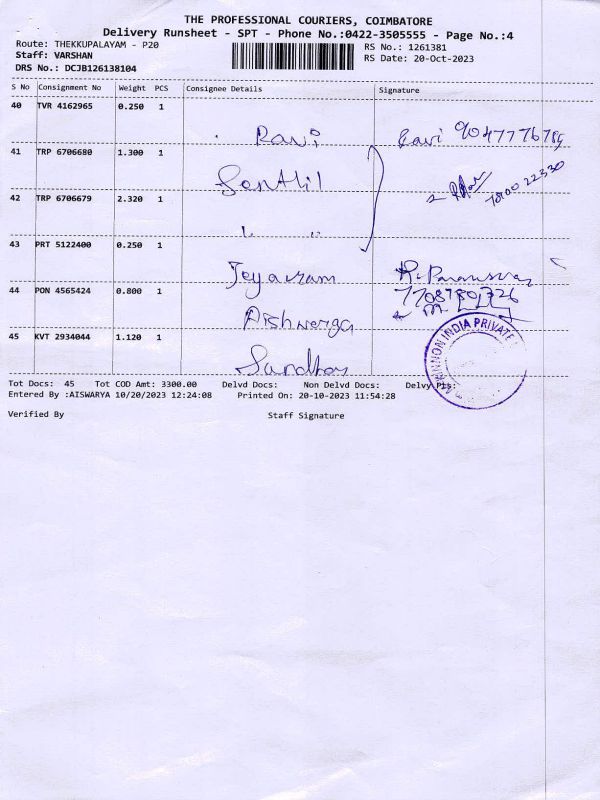 THE PROFESSIONAL COURIERS, COIMBATORE
Delivery Runsheet - SPT - Phone No.:0422-3505555 - Page No.:4
Route: THEKKUPALAYAM - P20 RS No.: 1261381
Staff: VARSHAN RS Date: 20-Oct-2023
DRS No.: DCJB126138104
S No Consignment No Weight PCS Consignee Details Signature
40 TVR 4162965 0.250 1
Ravi Ravi
41 TRP 6706680 1.300 1
Senthil 78100 22330
42 TRP 6706679 2.320 1
43 PRT 5122400 0.250 1
Jeyaram
44 PON 4565424 0.800 1
Aishwerya
45 KVT 2934044 1.120 1
INDIA PRIVATE
Tot Docs: 45 Tot COD Amt: 3300.00 Delvd Docs: Non Delvd Docs: Delvy Pts:
Entered By :AISWARYA 10/20/2023 12:24:08 Printed On: 20-10-2023 11:54:28
Verified By Staff Signature